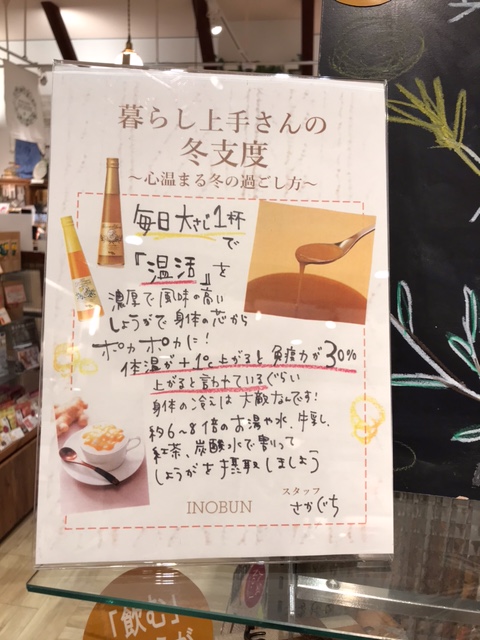 暮らし上手さんの
冬支度
～心温まる冬の過ごし方～
毎日大さじ1杯
で
『温活』を
濃厚で風味の高い
しょうがで身体の芯から
ポカポカに!
体温が+1℃上がると免疫力が30%
上がると言われているぐらい
身体の冷えは大敵なんです!
約6～8倍のお湯や水、牛乳、
紅茶、炭酸水で割って
しょうがを摂取しましょう
INOBUN
スタッフ
さかぐち
「飲む」